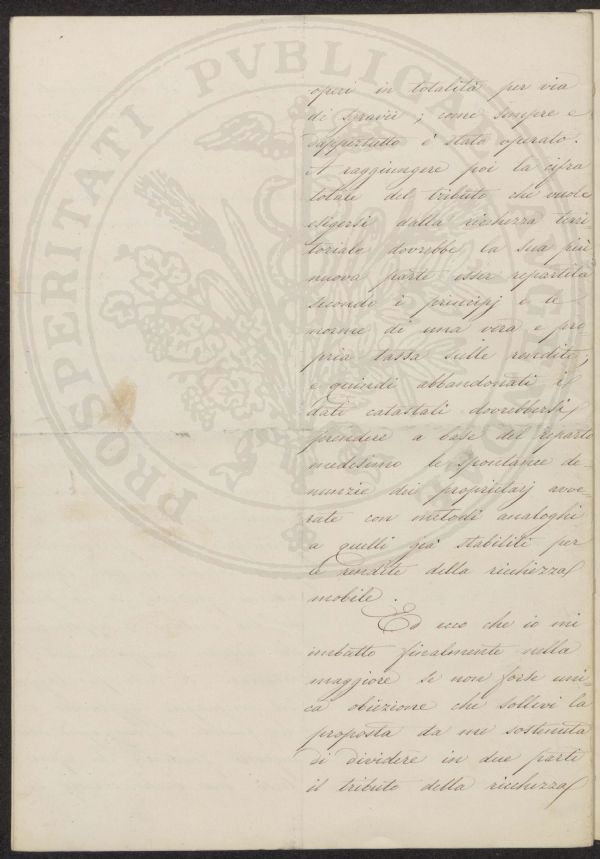 operi in totalità per via
di sgravii; come sempre e
dappertutto è stato operato.
A raggiungere poi la cifra
totale del tributo che vuole
esigersi dalla ricchezza terri
toriale dovrebbe la sua più
nuova parte esser repartita
secondo i principj e le
norme di una vera e pro
pria tassa sulle rendite;
e quindi abbandonati i
dati catastali dovrebbersi
prendere a base del reparto
medesimo le spontanee de-
nunzie dei proprietarj avve-
rate con metodi analoghi
a quelli già stabiliti per
le rendite della ricchezza
mobile.
Ed ecco che io mi
imbatto finalmente nella
maggiore se non forse uni-
ca obiezione che sollevi la
proposta da me sostenuta
di dividere in due parti
il tributo della ricchezza
PROSPERITATI PVBLICAE